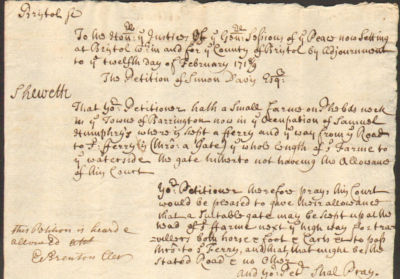 Bristol ss
To the Honble ye Justices Of ye Genll Sessions of ye Peace now Setting
at Bristol wthin and for ye County of Bristol by adjournment
to ye twelfth day of February 171 8/9
The Petition of Simon Davy Esqr
Sheweth
That yor Petitioner hath a Small Farme on
in ye Towne of Barrington now in ye Occupation of Samuel
Humphrys where is kept a fferry and ye way from ye Road
to sd fferry is thro' a Gate ye whole length of sd Farme to
ye waterside the gate hitherto not having the Allowance
of this Court
Yor Petitioner therefore prays this Court
would be pleased to give their allowance
that a Sutable gate may be kept up at the
head of sd ffarme next ye high way for tra=
vellers both horse & foot & Carts &c to pass
thro' to ye fferry, and that that might be the
Stated Road & no Other
and yor Petr Shal Pray.
this Petition is heard &
allowed
Brenton Cler